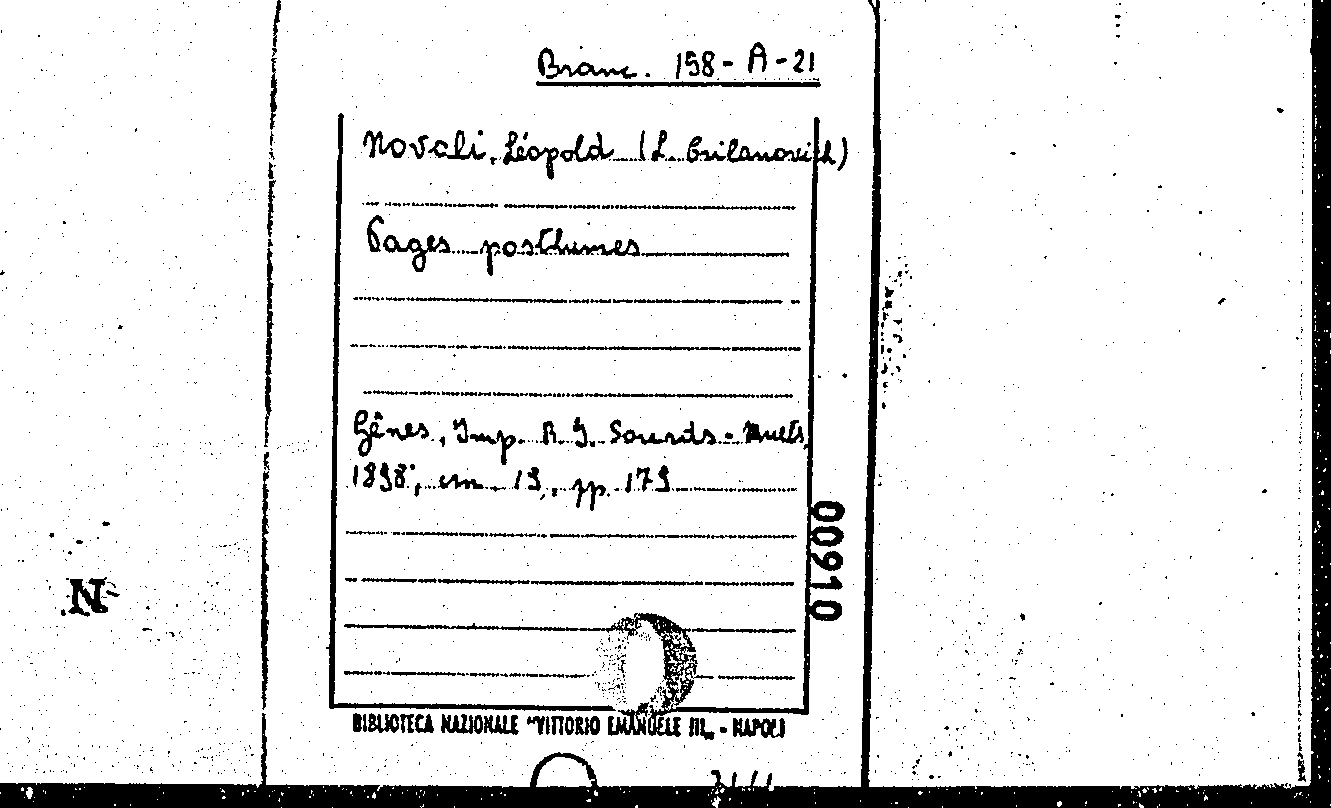 Branc. 158-A-21
Novali, Léopold (L. Crilanovich)
Pages posthumes
Gênes, Imp. R. I. Sourds-Muets,
1898; cm. 19, pp. 179
00910
N
BIBLIOTECA NAZIONALE "VITTORIO EMANUELE III„ - NAPOLI